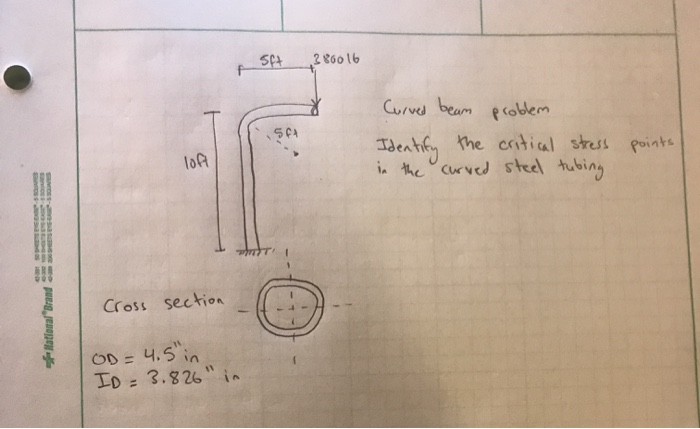 5ft 3800lb
Curved beam problem
5ft
Identify the critical stress points
in the curved steel tubing
10ft
Cross section
OD = 4.5" in
ID = 3.826" in
National® Brand